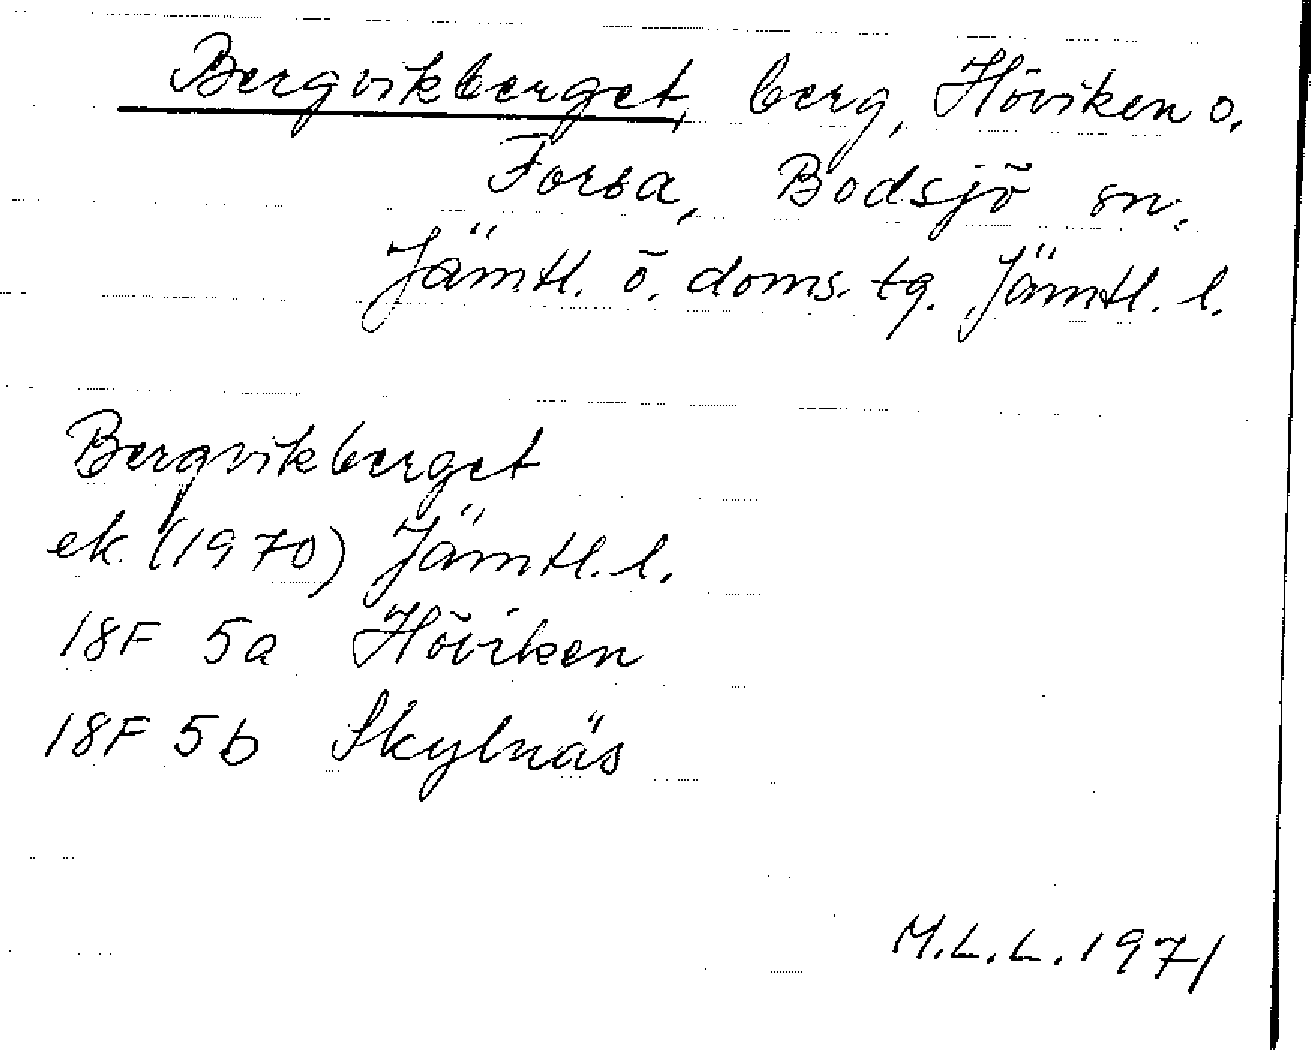 Bergvikberget, berg, Höviken o.
Forsa, Bodsjö sn.
Jämtl. ö. doms. tg. Jämtl. l.
Bergvikberget
ek. (1970) Jämtl. l.
18F 5a Höviken
18F 5b Skylnäs
M.L.L. 1971